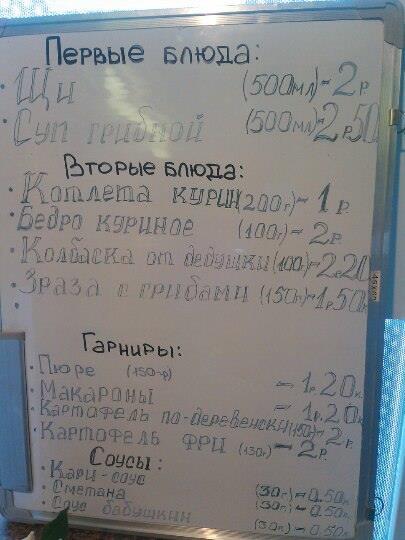 Первые блюда:
· Щи (500мл)-2р
· Суп грибной (500мл)-2р.50к
Вторые блюда:
· Котлета курин(200г)-1р.
· Бедро куриное (100г)-2р.
· Колбаска от дедушки(100г)-2.20
· Зраза с грибами (150г)-1р.50к
·
Гарниры:
· Пюре (150гр) -1р.20к.
· Макароны -1р.20к
· Картофель по-деревенски(150)-2р.
· Картофель фри (130г)-2р.
Соусы:
· Кари-соус (30г)-0.50к
· Сметана (30г)-0.50к.
· Соус бабушкин (30г)-0.50к